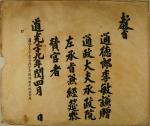 教旨
通德郎李敏謙贈
通政大夫承政院
左承旨兼經筵參
贊官者
道光二十九年閏四月